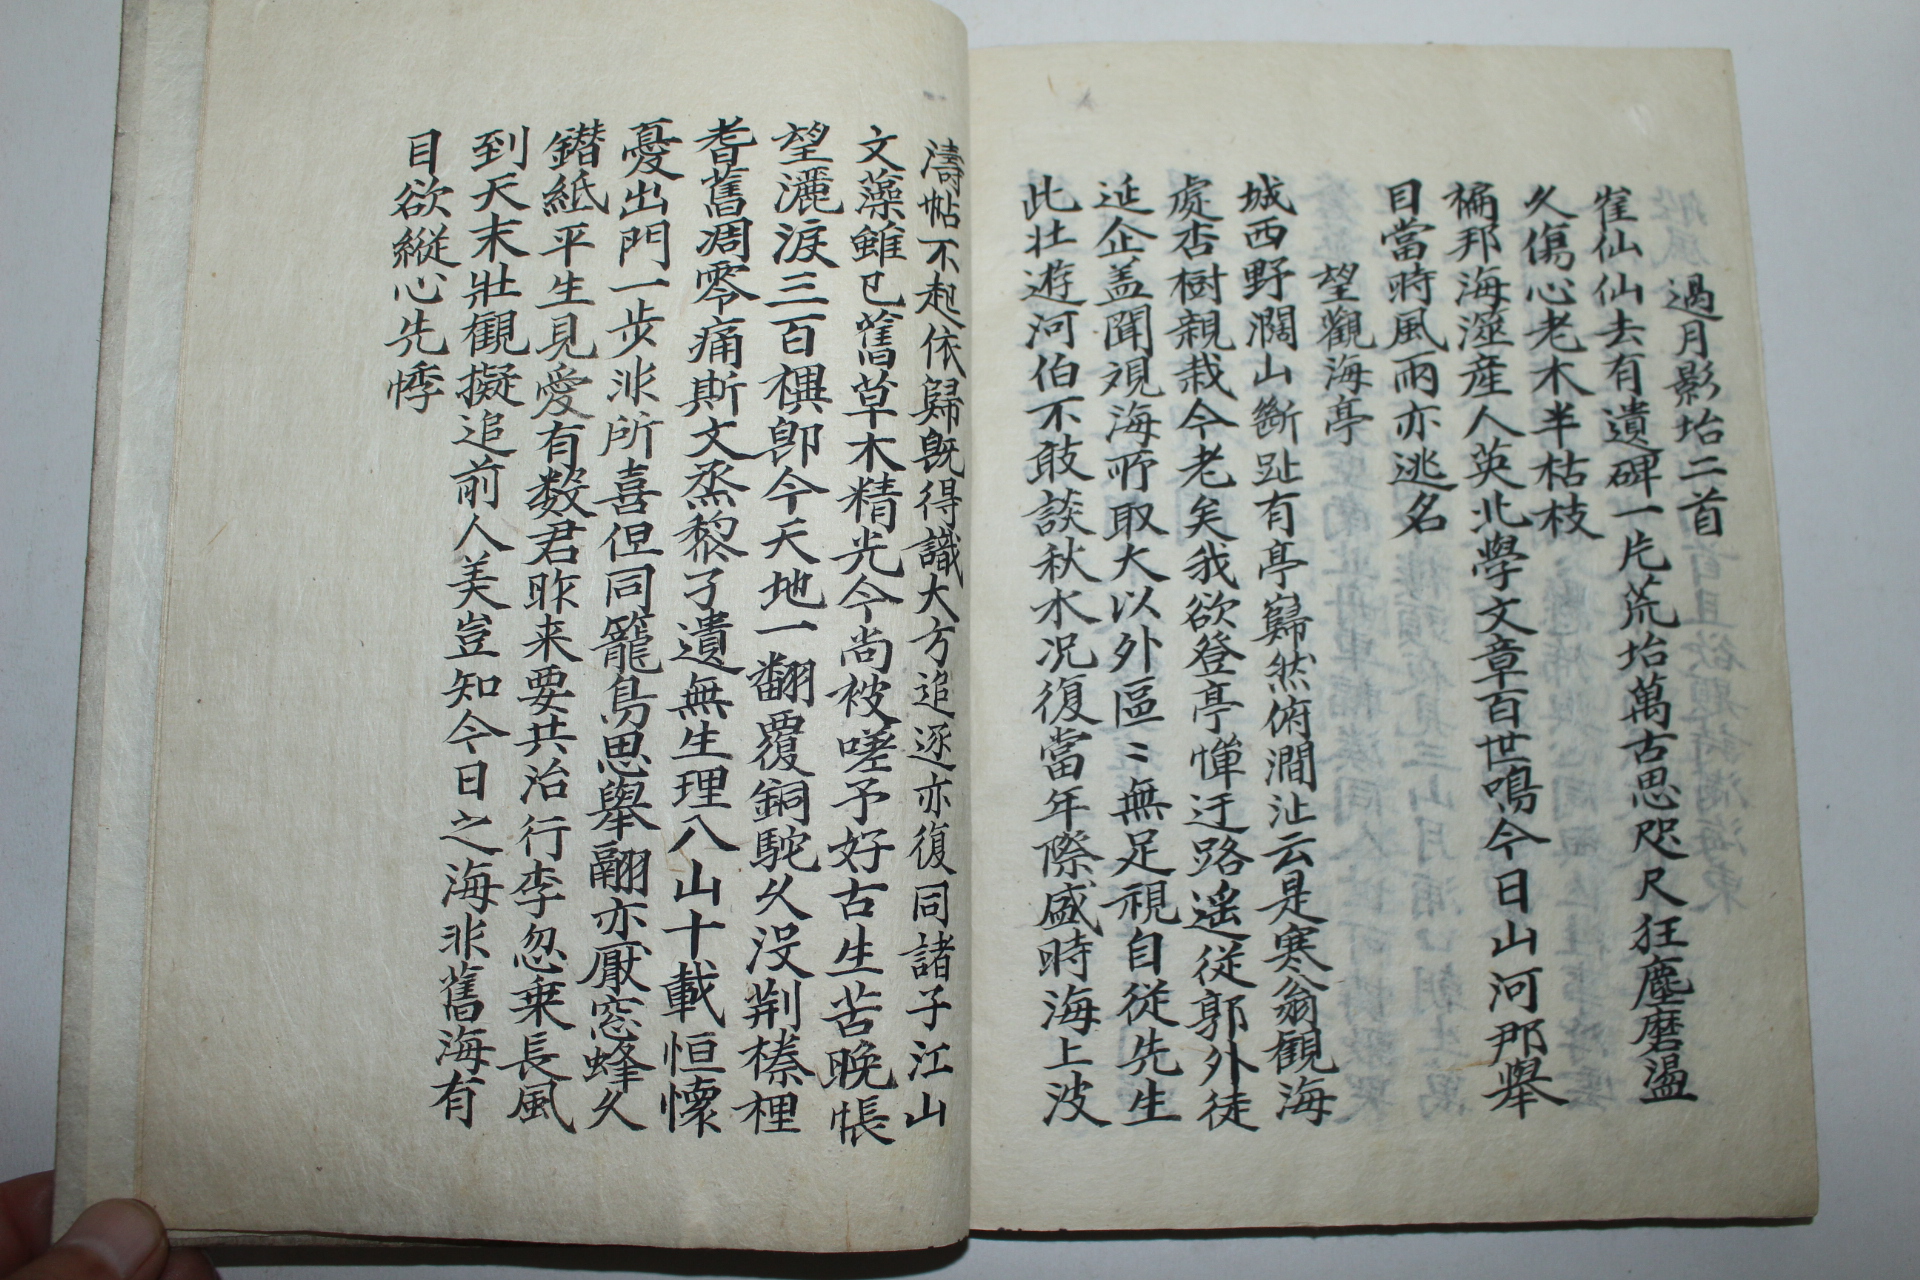 過月影坮二首
崔仙仙去有遺碑一片荒坮萬古思咫尺狂塵磨滥
久傷心老木半枯枝
褊邦海澨産人英北學文章百世鳴今日山河那舉
目當時風雨亦逃名
望觀海亭
城西野濶山斷趾有亭巋然俯澗沚云是寒翁觀海
處杏樹親栽今老矣我欲登亭惮迂路遥従郭外徒
延企盖聞覌海所取大以外區〻無足視自従先生
此壮遊河伯不敢談秋水况復當年際盛時海上波
濤帖不起依歸既得識大方追逐亦復同諸子江山
文藻雖已舊草木精光今尚被嗟予好古生苦晚悵
望灑淚三百禩卽今天地一翻覆銅駝久没荆榛裡
耆舊凋零痛斯文烝黎孑遺無生理八山十載恒懷
憂出門一步非所喜但同籠鳥思舉翮亦厭窓蜂久
鑚紙平生見愛有数君昨来要共治行李忽乗長風
到天末壯觀擬追前人美豈知今日之海非舊海有
目欲縱心先悸